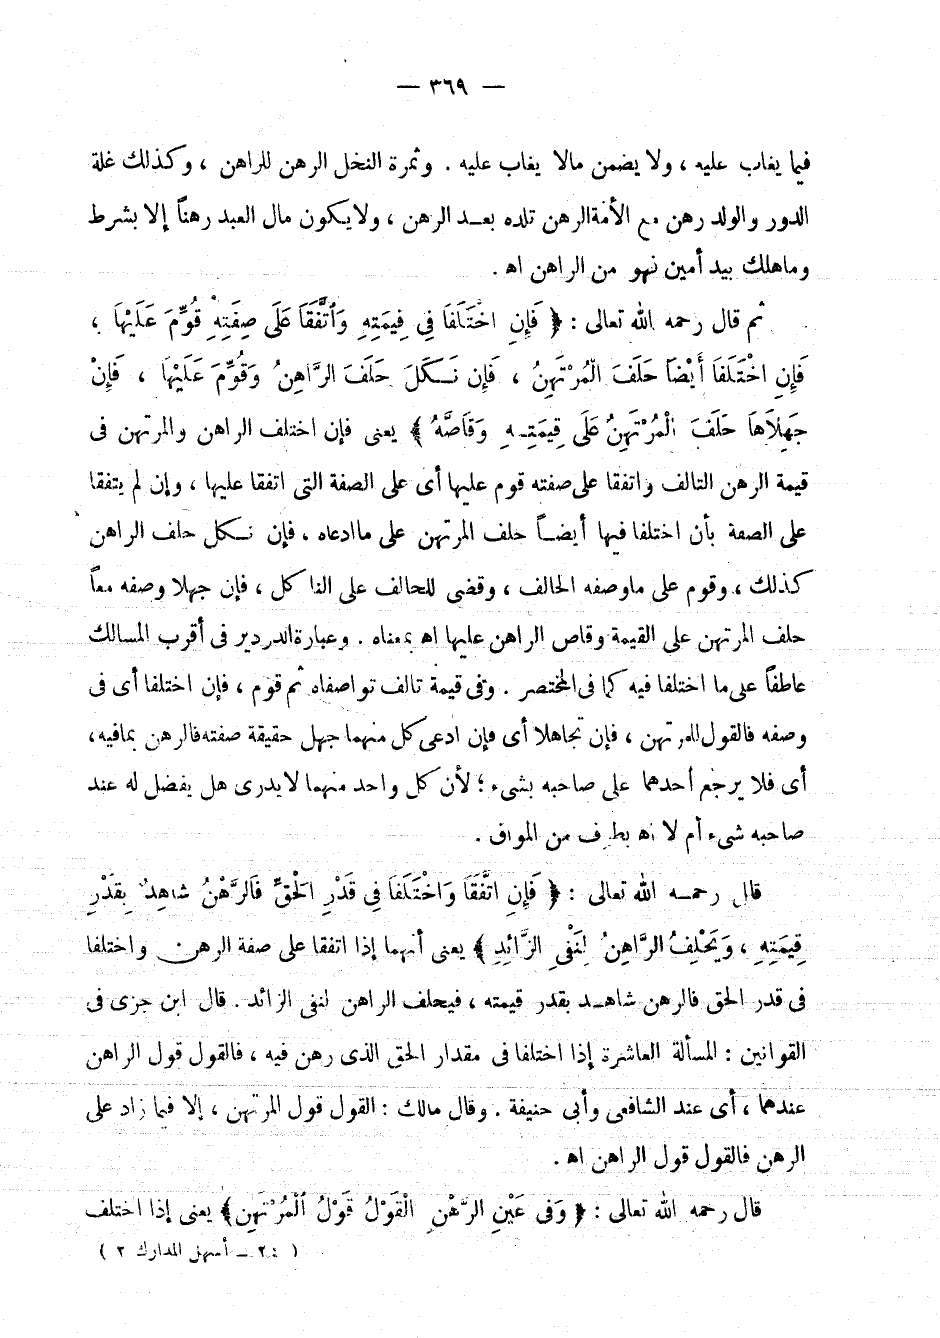 — ٣٦٩ —
فيما يغاب عليه ، ولا يضمن مالا يغاب عليه . وثمرة النخل الرهن للراهن ، وكذلك غلة
الدور والولد رهن مع الأمة الرهن تلده بعد الرهن ، ولا يكون مال العبد رهناً إلا بشرط
وماهلك بيد أمين فهو من الراهن اه .
ثم قال رحمه الله تعالى : ﴿ فَإِنِ اخْتَلَفَا فِي قِيمَتِهِ وَاتَّفَقَا عَلَى صِفَتِهِ قُوِّمَ عَلَيْهَا ،
فَإِنِ اخْتَلَفَا أَيْضاً حَلَفَ الْمُرْتَهِنُ ، فَإِن نَكَلَ حَلَفَ الرَّاهِنُ وَقُوِّمَ عَلَيْهَا ، فَإِنْ
جَهِلَاهَا حَلَفَ الْمُرْتَهِنُ عَلَى قِيمَتِهِ وَقَاصَّهُ ﴾ يعنى فإن اختلف الراهن والمرتهن فى
قيمة الرهن التالف واتفقا على صفته قوم عليها أى على الصفة التى اتفقا عليها ، وإن لم يتفقا
على الصفة بأن اختلفا فيها أيضاً حلف المرتهن على ماادعاه ، فإن نكل حلف الراهن
كذلك ، وقوم على ماوصفه الحالف ، وقضى للحالف على الناكل ، فإن جهلا وصفه معاً
حلف المرتهن على القيمة وقاص الراهن عليها اه بمعناه . وعبارة الدردير فى أقرب المسالك
عاطفاً على ما اختلفا فيه كما فى المختصر . وفى قيمة تالف تواصفاه ثم قوم ، فإن اختلفا أى فى
وصفه فالقول للمرتهن ، فإن تجاهلا أى فإن ادعى كل منهما جهل حقيقة صفته فالرهن بمافيه ،
أى فلا يرجع أحدهما على صاحبه بشىء ؛ لأن كل واحد منهما لايدرى هل يفضل له عند
صاحبه شىء أم لا اه بطرف من المواق .
قال رحمه الله تعالى : ﴿ فَإِنِ اتَّفَقَا وَاخْتَلَفَا فِي قَدْرِ الْحَقِّ فَالرَّهْنُ شَاهِدٌ بِقَدْرِ
قِيمَتِهِ ، وَيَحْلِفُ الرَّاهِنُ لِنَفْىِ الزَّائِدِ ﴾ يعنى أنهما إذا اتفقا على صفة الرهن واختلفا
فى قدر الحق فالرهن شاهد بقدر قيمته ، فيحلف الراهن لنفى الزائد . قال ابن جزى فى
القوانين : المسألة العاشرة إذا اختلفا فى مقدار الحق الذى رهن فيه ، فالقول قول الراهن
عندهما ، أى عند الشافعى وأبى حنيفة . وقال مالك : القول قول المرتهن ، إلا فيما زاد على
الرهن فالقول قول الراهن اه .
قال رحمه الله تعالى : ﴿ وَفى عَيْنِ الرَّهْنِ الْقَوْلُ قَوْلُ الْمُرْتَهِنِ ﴾ يعنى إذا اختلف
( ٢٤ — أسهل المدارك ٢ )